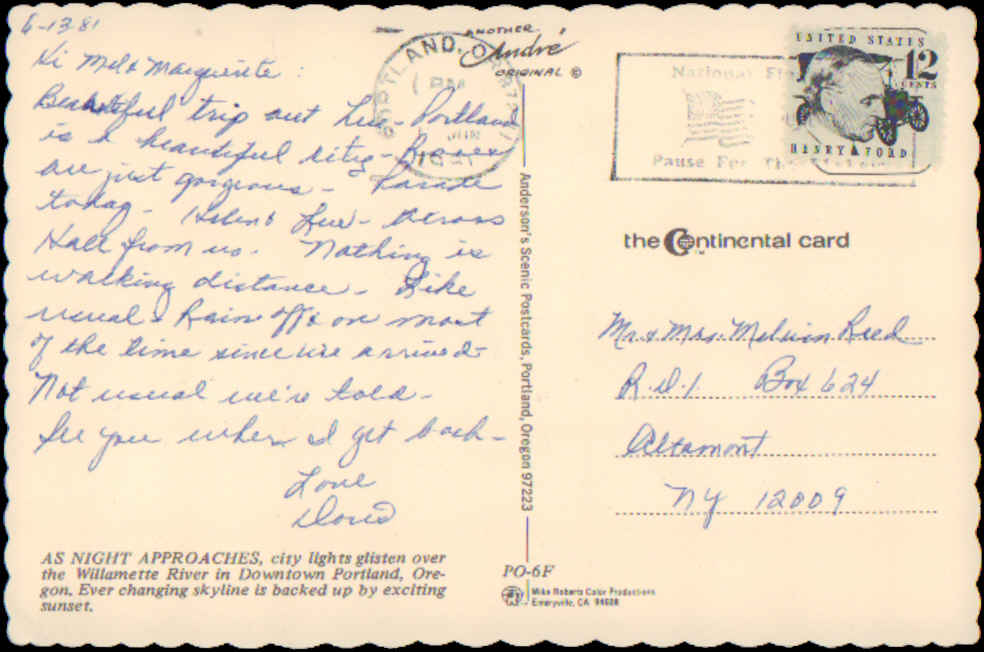 6-13-81
Hi Mel & Marguerite:
Beautiful trip out here - Portland
is a beautiful city - Roses
are just gorgeous - Parade
today - Helen & Lew - across
Hall from us. Nothing is
walking distance. Like
usual & Rain off & on most
of the time since we arrived -
Not usual we're told -
See you when I get back -
Love
Doris
AS NIGHT APPROACHES, city lights glisten over
the Willamette River in Downtown Portland, Ore-
gon. Ever changing skyline is backed up by exciting
sunset.
ANOTHER
André
ORIGINAL ©
PORTLAND, OR
PM
JUN
1981
Anderson's Scenic Postcards, Portland, Oregon 97223
PO-6F
Mike Roberts Color Productions
Emeryville, CA 94608
National
Pause For The
UNITED STATES
12
CENTS
HENRY FORD
the Continental card
TM
Mr. & Mrs. Melvin Reed
R.D.1. Box 624
Altamont
NY 12009